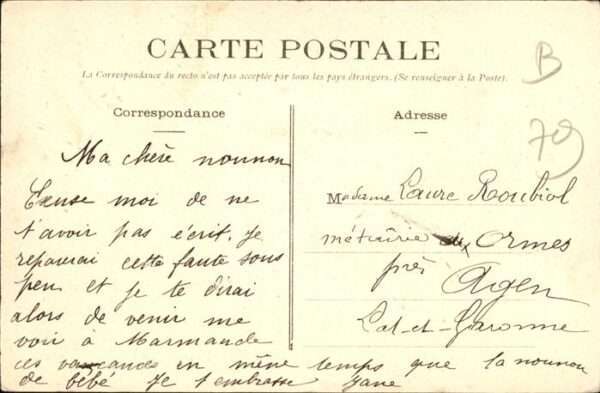 CARTE POSTALE
La Correspondance du recto n'est pas acceptée par tous les pays étrangers. (Se renseigner à la Poste).
Correspondance
Ma chère nounou
Excuse moi de ne
t'avoir pas écrit. Je
reparerai cette faute sous
peu et je te dirai
alors de venir me
voir à Marmande
ces vacances en même temps que la nounou
de bébé Je t'embrasse
Adresse
Madame Laure Roubiol
métairie aux Ormes
près Agen
Lot-et-Garonne
B
79